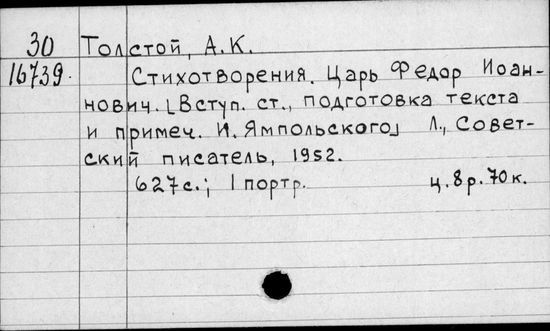 30 Толстой, А.К.
16739. Стихотворения. Царь Федор Иоан-
нович. [Вступ. ст., подготовка текста
и примеч. И. Ямпольского] Л., Совет-
ский писатель, 1952.
627с.; 1 портр. ц. 8р. 70к.